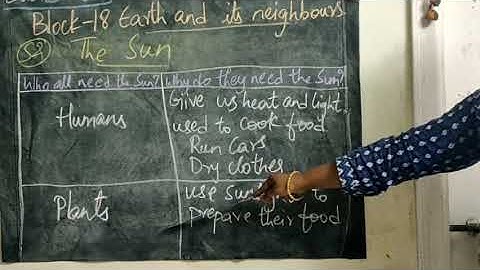 Block-18 Earth and its neighbours
S2 The Sun
Who all need the Sun? Why do they need the Sun?
Humans
Give us heat and light
used to cook food
Run cars
Dry clothes
Plants
use to
prepare their food